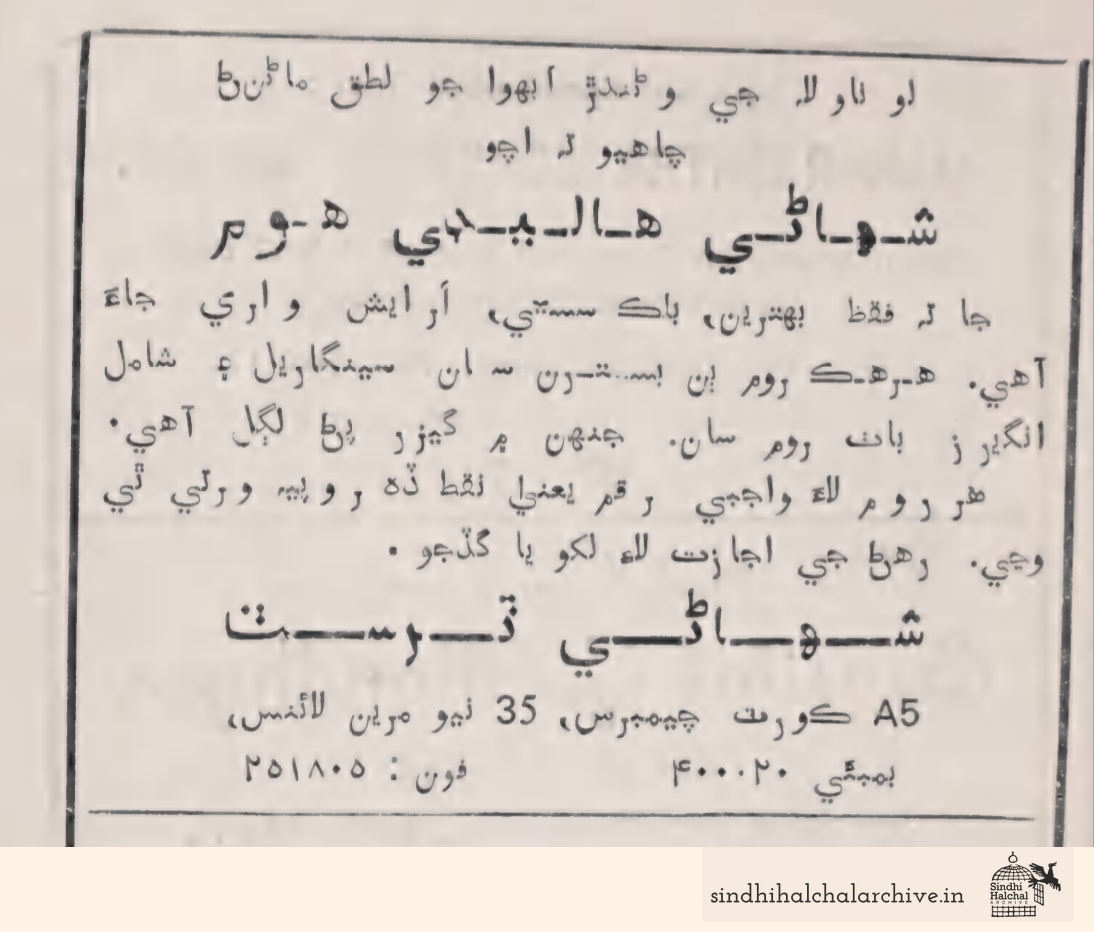 لوناولا جي وڻندڙ آبهوا جو لطف ماڻڻ
چاهيو ته اچو
شهاڻي هاليڊي هوم
جا نه فقط بهترين، پاڪ سستي، آرايش واري جاءِ
آهي. هرهڪ روم ٻن بسترن سان سينگاريل ۽ شامل
انگريز باٿ روم سان. جنهن ۾ گيزر پڻ لڳل آهي.
هر روم لاءِ واجبي رقم يعني فقط ڏهه روپيه ورتي ٿي
وڃي. رهڻ جي اجازت لاءِ لکو يا گڏجو.
شهاڻي ٽرسٽ
A5 ڪورٽ چيمبرس، 35 نيو مرين لائنس،
بمبئي ۴۰۰۰۲۰ فون : ۲۵۱۸۰۵
sindhihalchalarchive.in
Sindhi
Halchal
ARCHIVE